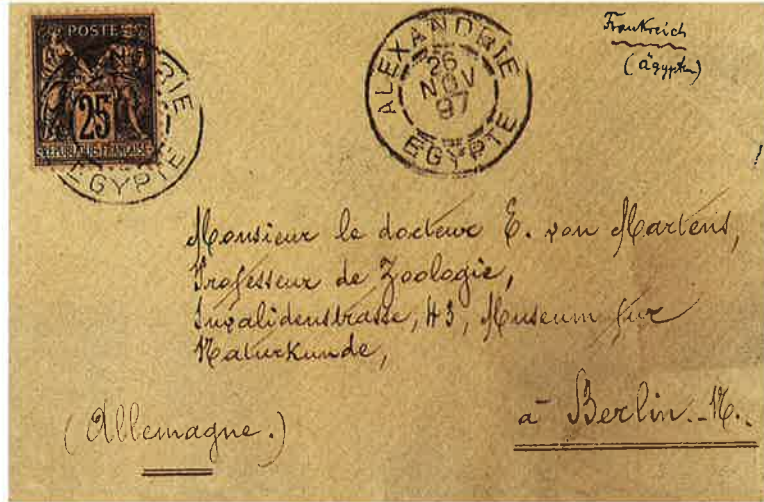 POSTE
25
REPUBLIQUE FRANCAISE
EGYPTE
ALEXANDRIE
26
NOV
97
EGYPTE
Frankreich
(Ägypten)
Monsieur le docteur E. von Martens,
Professeur de Zoologie,
Invalidenstrasse, 43, Museum für
Naturkunde,
(Allemagne.)
à Berlin.-N.